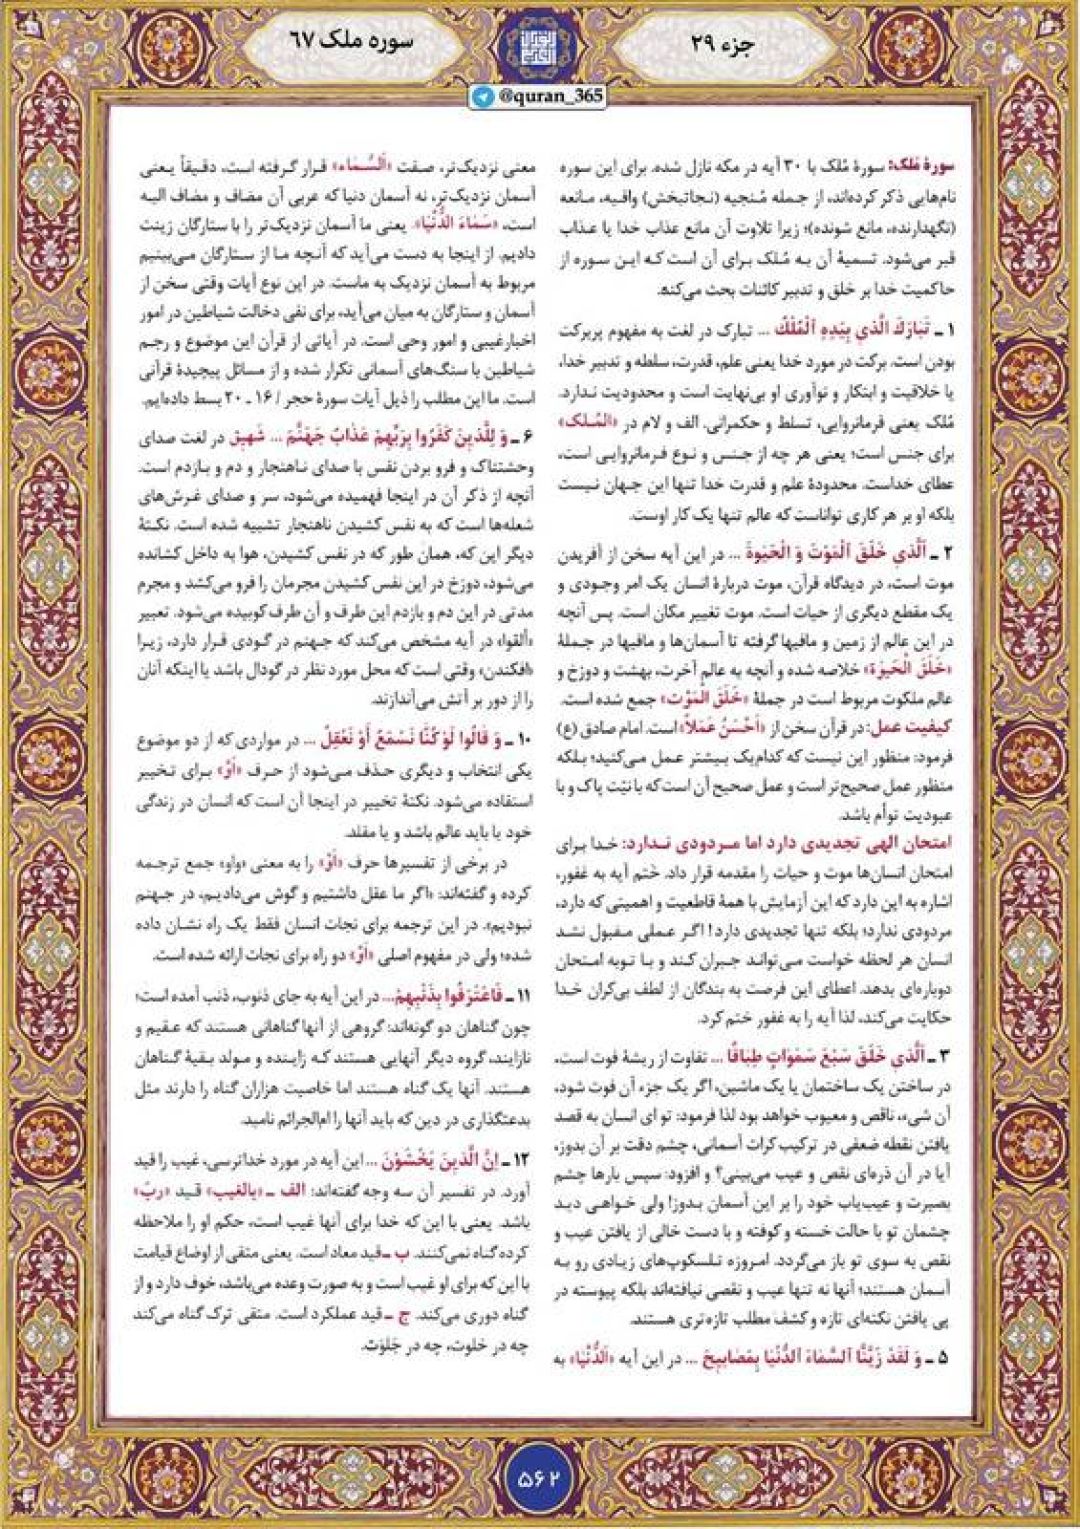 جزء ۲۹
سوره ملک ۶۷
@quran_365
سورهٔ مُلک: سورهٔ مُلک با ۳۰ آیه در مکه نازل شده. برای این سوره
نام‌هایی ذکر کرده‌اند، از جمله مُنجیه (نجاتبخش) واقیه، مانعه
(نگهدارنده، مانع شونده)؛ زیرا تلاوت آن مانع عذاب خدا یا عذاب
قبر می‌شود. تسمیهٔ آن به مُلک برای آن است که این سوره از
حاکمیت خدا بر خلق و تدبیر کائنات بحث می‌کند.
۱ ـ تَبَارَكَ الَّذِي بِيَدِهِ ٱلْمُلْكُ ... تبارک در لغت به مفهوم پربرکت
بودن است. برکت در مورد خدا یعنی علم، قدرت، سلطه و تدبیر خدا،
یا خلاقیت و ابتکار و نوآوری او بی‌نهایت است و محدودیت ندارد.
مُلک، یعنی فرمانروایی، تسلط و حکمرانی. الف و لام در «اَلمُلک»
برای جنس است؛ یعنی هر چه از جنس و نوع فرمانروایی است،
عطای خداست. محدودهٔ علم و قدرت خدا تنها این جهان نیست
بلکه او بر هر کاری تواناست که عالم تنها یک کار اوست.
۲ ـ اَلَّذِي خَلَقَ ٱلْمَوْتَ وَ الْحَيٰوةَ ... در این آیه سخن از آفریدن
موت است، در دیدگاه قرآن، موت دربارهٔ انسان یک امر وجودی و
یک مقطع دیگری از حیات است. موت تغییر مکان است. پس آنچه
در این عالم از زمین و مافیها گرفته تا آسمان‌ها و مافیها در جملهٔ
«خَلَقَ الْحَيٰوةَ» خلاصه شده و آنچه به عالم آخرت، بهشت و دوزخ و
عالم ملکوت مربوط است در جملهٔ «خَلَقَ المَوْت» جمع شده است.
کیفیت عمل: در قرآن سخن از «اَحْسَنُ عَمَلاً» است. امام صادق (ع)
فرمود: منظور این نیست که کدام‌یک بیشتر عمل می‌کنید؛ بلکه
منظور عمل صحیح‌تر است و عمل صحیح آن است که با نیّت پاک و با
عبودیت توأم باشد.
امتحان الهی تجدیدی دارد اما مردودی ندارد: خدا برای
امتحان انسان‌ها موت و حیات را مقدمه قرار داد. ختم آیه به غفور،
اشاره به این دارد که این آزمایش با همهٔ قاطعیت و اهمیتی که دارد،
مردودی ندارد؛ بلکه تنها تجدیدی دارد! اگر عملی مقبول نشد
انسان هر لحظه خواست می‌تواند جبران کند و با توبه امتحان
دوباره‌ای بدهد. اعطای این فرصت به بندگان از لطف بی‌کران خدا
حکایت می‌کند، لذا آیه را به غفور ختم کرد.
۳ ـ اَلَّذِي خَلَقَ سَبْعَ سَمٰوَاتٍ طِبَاقًا ... تفاوت از ریشهٔ فوت است،
در ساختن یک ساختمان یا یک ماشین، اگر یک جزء آن فوت شود،
آن شیء، ناقص و معیوب خواهد بود لذا فرمود: تو ای انسان به قصد
یافتن نقطه ضعفی در ترکیب کرات آسمانی، چشم دقت بر آن بدوز،
آیا در آن ذره‌ای نقص و عیب می‌بینی؟ و افزود: سپس بارها چشم
بصیرت و عیب‌یاب خود را بر این آسمان بدوز! ولی خواهی دید
چشمان تو با حالت خسته و کوفته و با دست خالی از یافتن عیب و
نقص به سوی تو باز می‌گردد. امروزه تلسکوپ‌های زیادی رو به
آسمان هستند؛ آنها نه تنها عیب و نقصی نیافته‌اند بلکه پیوسته در
پی یافتن نکته‌ای تازه و کشف مطلب تازه‌تری هستند.
۵ ـ وَ لَقَدْ زَيَّنَّا ٱلسَّمَاءَ ٱلدُّنْيَا بِمَصَابِيحَ ... در این آیه «اَلدُّنْيَا» به
معنی نزدیک‌تر، صفت «اَلسَّمَاء» قرار گرفته است، دقیقاً یعنی
آسمان نزدیک‌تر، نه آسمان دنیا که عربی آن مضاف و مضاف الیه
است، «سَمَاءَ الدُّنْيَا». یعنی ما آسمان نزدیک‌تر را با ستارگان زینت
دادیم. از اینجا به دست می‌آید که آنچه ما از ستارگان می‌بینیم
مربوط به آسمان نزدیک به ماست. در این نوع آیات وقتی سخن از
آسمان و ستارگان به میان می‌آید، برای نفی دخالت شیاطین در امور
اخبارغیبی و امور وحی است. در آیاتی از قرآن این موضوع و رجم
شیاطین با سنگ‌های آسمانی تکرار شده و از مسائل پیچیدهٔ قرآنی
است. ما این مطلب را ذیل آیات سورهٔ حجر / ۱۶ ـ ۲۰ بسط داده‌ایم.
۶ ـ وَ لِلَّذِينَ كَفَرُوا بِرَبِّهِمْ عَذَابُ جَهَنَّمَ ... شَهِيق در لغت صدای
وحشتناک و فرو بردن نفس با صدای ناهنجار و دم و بازدم است.
آنچه از ذکر آن در اینجا فهمیده می‌شود، سر و صدای غرش‌های
شعله‌ها است که به نفس کشیدن ناهنجار تشبیه شده است. نکتهٔ
دیگر این که، همان طور که در نفس کشیدن، هوا به داخل کشانده
می‌شود، دوزخ در این نفس کشیدن مجرمان را فرو می‌کشد و مجرم
مدتی در این دم و بازدم این طرف و آن طرف کوبیده می‌شود. تعبیر
«اُلقوا» در آیه مشخص می‌کند که جهنم در گودی قرار دارد، زیرا
«افکندن» وقتی است که محل مورد نظر در گودال باشد یا اینکه آنان
را از دور بر آتش می‌اندازند.
۱۰ ـ وَ قَالُوا لَوْ كُنَّا نَسْمَعُ أَوْ نَعْقِلُ ... در مواردی که از دو موضوع
یکی انتخاب و دیگری حذف می‌شود از حرف «اَوْ» برای تخییر
استفاده می‌شود. نکتهٔ تخییر در اینجا آن است که انسان در زندگی
خود یا باید عالم باشد و یا مقلد.
در برخی از تفسیرها حرف «اَوْ» را به معنی «واو» جمع ترجمه
کرده و گفته‌اند: «اگر ما عقل داشتیم و گوش می‌دادیم، در جهنم
نبودیم». در این ترجمه برای نجات انسان فقط یک راه نشان داده
شده؛ ولی در مفهوم اصلی «اَوْ» دو راه برای نجات ارائه شده است.
۱۱ ـ فَاعْتَرَفُوا بِذَنْبِهِمْ... در این آیه به جای ذنوب، ذنب آمده است؛
چون گناهان دو گونه‌اند: گروهی از آنها گناهانی هستند که عقیم و
نازایند، گروه دیگر آنهایی هستند که زاینده و مولد بقیهٔ گناهان
هستند. آنها یک گناه هستند اما خاصیت هزاران گناه را دارند مثل
بدعتگذاری در دین که باید آنها را ام‌الجرائم نامید.
۱۲ ـ اِنَّ الَّذِينَ يَخْشَوْنَ ... این آیه در مورد خداترسی، غیب را قید
آورد. در تفسیر آن سه وجه گفته‌اند: الف ـ «بالغیب» قید «ربّ»
باشد. یعنی با این که خدا برای آنها غیب است، حکم او را ملاحظه
کرده گناه نمی‌کنند. ب ـ قید معاد است. یعنی متقی از اوضاع قیامت
با این که برای او غیب است و به صورت وعده می‌باشد، خوف دارد و از
گناه دوری می‌کند. ج ـ قید عملکرد است. متقی ترک گناه می‌کند
چه در خلوت، چه در جَلوَت.
۵۶۲